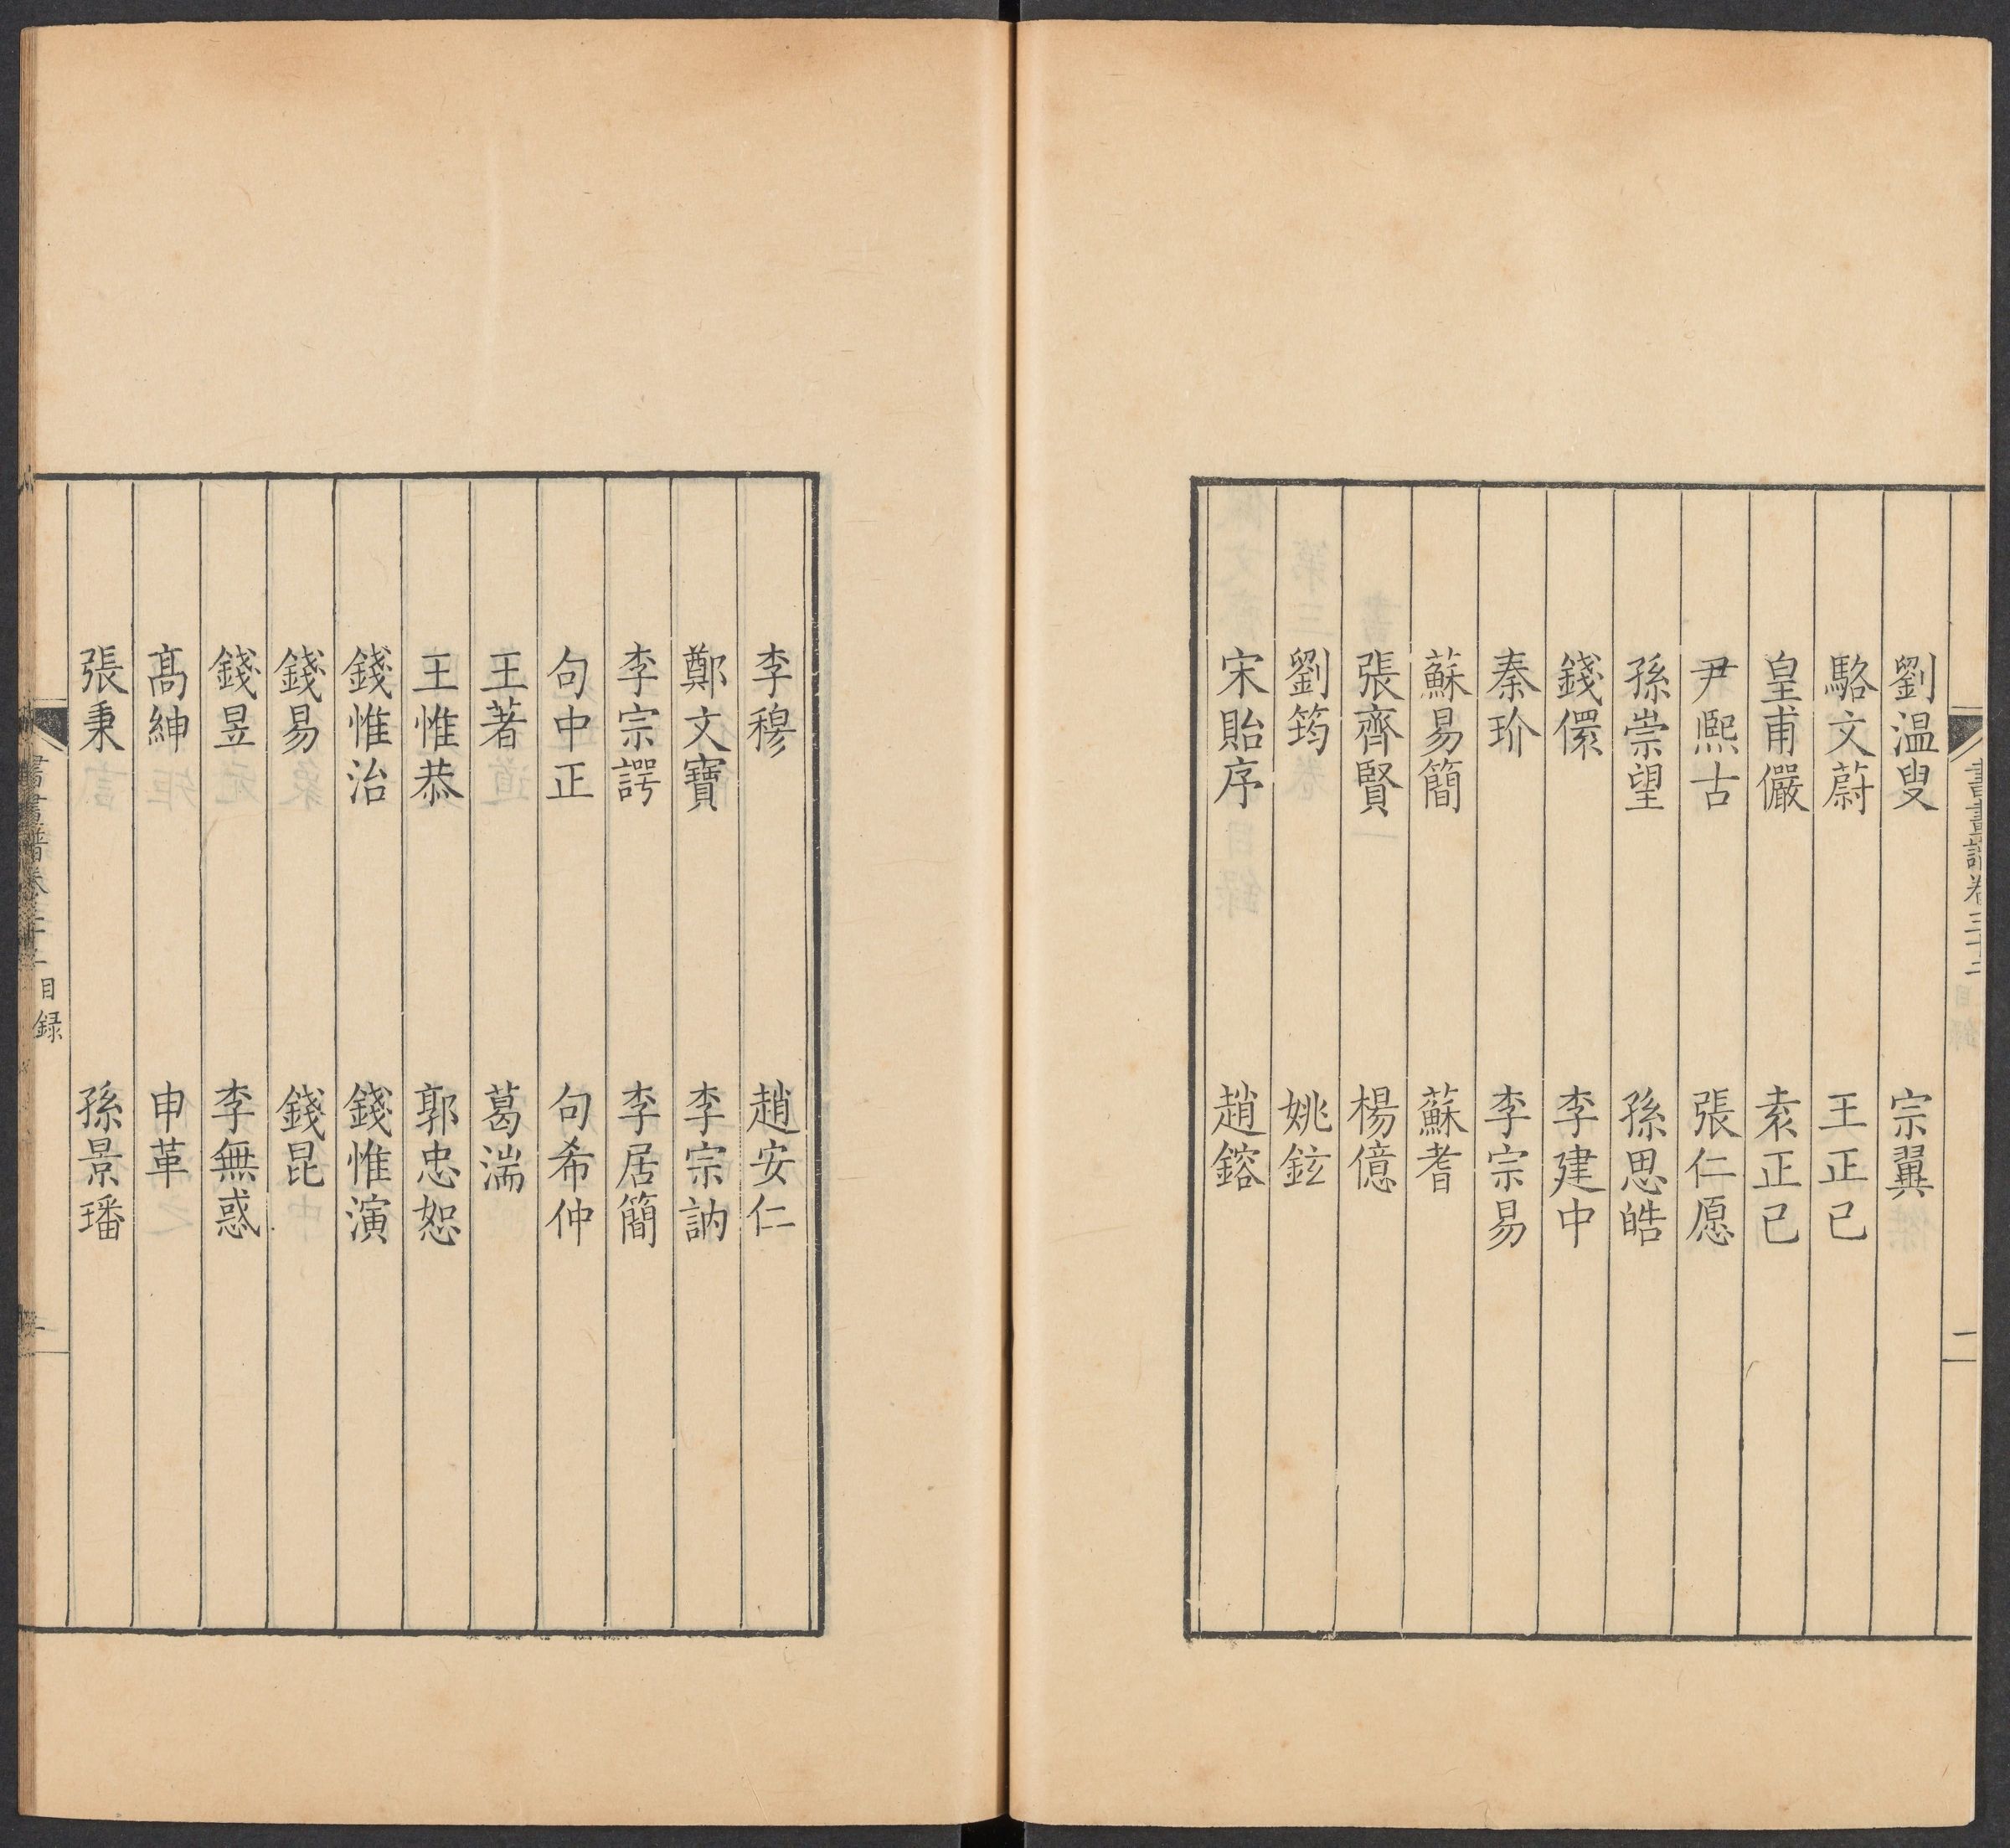 書畫譜卷三十二
二
劉溫叟 宗翼
駱文蔚 王正己
皇甫儼 袁正己
尹熙古 張仁愿
孫崇望 孫思皓
錢儇 李建中
秦玠 李宗易
蘇易簡 蘇耆
張齊賢 楊億
劉筠 姚鉉
宋貽序 趙鎔
李穆 趙安仁
鄭文寶 李宗訥
李宗諤 李居簡
句中正 句希仲
王著 葛湍
王惟恭 郭忠恕
錢惟治 錢惟演
錢易 錢昆
錢昱 李無惑
高紳 申革
張秉 孫景璠
書畫譜卷三十二 目録